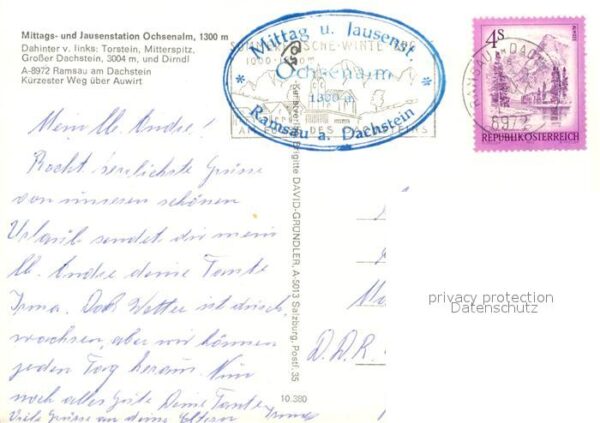 Mittags- und Jausenstation Ochsenalm, 1300 m
Dahinter v. links: Torstein, Mitterspitz,
Großer Dachstein, 3004 m, und Dirndl
A-8972 Ramsau am Dachstein
Kürzester Weg über Auwirt
Mittag u. Jausenst.
Ochsenalm
1300 m
Ramsau a. Dachstein
4 S
REPUBLIK ÖSTERREICH
8972
Mein lb. Andre!
Recht herzlichste Grüsse
von unseren schönen
Urlaub sendet dir mein
lb. Andre deine Tante
Irma. Das Wetter ist
wachsen, aber wir können
jeden Tag heraus. Nun
noch alles Gute Deine Tante
Irma
Viele Grüsse an deine Eltern
Brigitte DAVID-GRÜNDLER, A 5013 Salzburg, Postf. 35
10.380
D.D.R.
privacy protection
Datenschutz